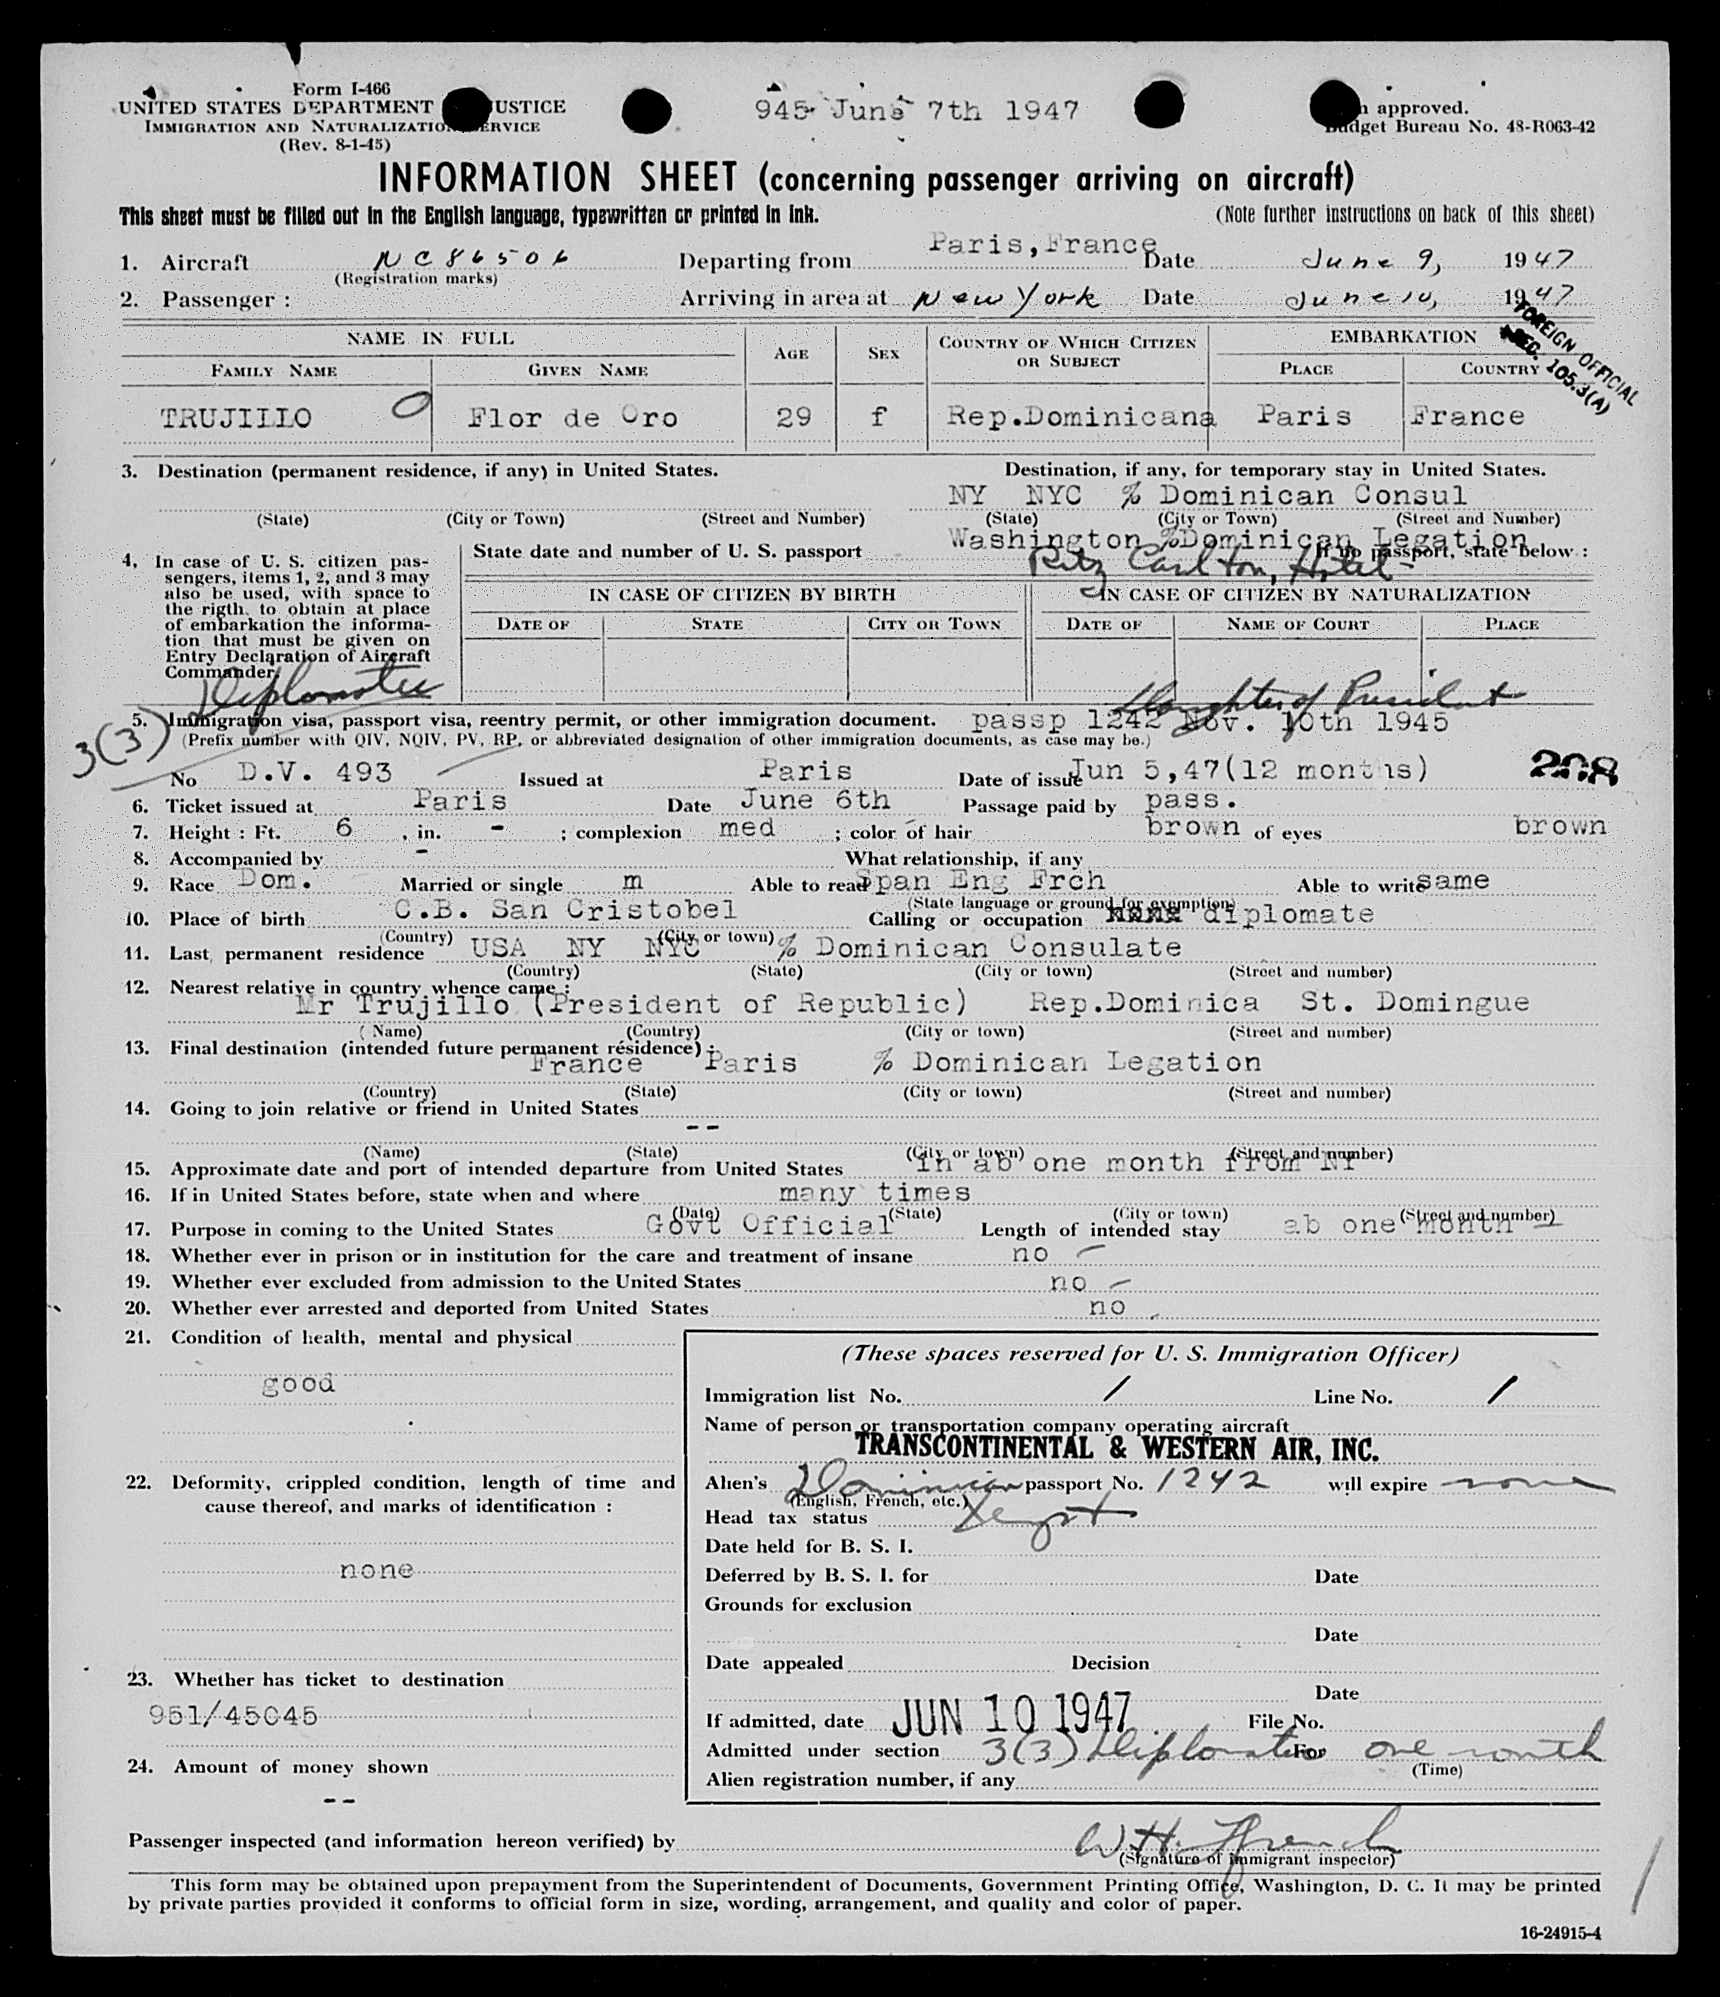 Form I-466
UNITED STATES DEPARTMENT JUSTICE
IMMIGRATION AND NATURALIZATION SERVICE
(Rev. 8-1-45)
945 June 7th 1947
approved.
Budget Bureau No. 43-R063-42
INFORMATION SHEET (concerning passenger arriving on aircraft)
This sheet must be filled out in the English language, typewritten or printed in ink.
(Note further instructions on back of this sheet)
1. Aircraft NC86506 Departing from Paris, France Date June 9, 1947
(Registration marks)
2. Passenger : Arriving in area at New York Date June 10, 1947
FOREIGN OFFICIAL
SEC. 105.3(A)
NAME IN FULL AGE SEX COUNTRY OF WHICH CITIZEN OR SUBJECT EMBARKATION
FAMILY NAME GIVEN NAME PLACE COUNTRY
TRUJILLO Flor de Oro 29 f Rep.Dominicana Paris France
3. Destination (permanent residence, if any) in United States. Destination, if any, for temporary stay in United States.
NY NYC % Dominican Consul
(State) (City or Town) (Street and Number) (State) (City or Town) (Street and Number)
Washington %Dominican Legation
Ritz Carlton, Hotel
4, In case of U. S. citizen passengers, items 1, 2, and 3 may also be used, with space to the rigth, to obtain at place of embarkation the information that must be given on Entry Declaration of Aircraft Commander.
State date and number of U. S. passport If no passport, state below :
IN CASE OF CITIZEN BY BIRTH IN CASE OF CITIZEN BY NATURALIZATION
DATE OF STATE CITY OR TOWN DATE OF NAME OF COURT PLACE
Diplomatic
Daughter of President
3(3)
5. Immigration visa, passport visa, reentry permit, or other immigration document. passp 1242 Nov. 10th 1945
(Prefix number with QIV, NQIV, PV, RP, or abbreviated designation of other immigration documents, as case may be.)
No D.V. 493 Issued at Paris Date of issue Jun 5,47(12 months) 208
6. Ticket issued at Paris Date June 6th Passage paid by pass.
7. Height : Ft. 6 , in. - ; complexion med ; color of hair brown of eyes brown
8. Accompanied by - What relationship, if any
9. Race Dom. Married or single m Able to read Span Eng Frch Able to write same
(State language or ground for exemption)
10. Place of birth C.B. San Cristobel Calling or occupation none diplomate
(Country) (City or town)
11. Last permanent residence USA NY NYC % Dominican Consulate
(Country) (State) (City or town) (Street and number)
12. Nearest relative in country whence came :
Mr Trujillo (President of Republic) Rep.Dominica St. Domingue
(Name) (Country) (City or town) (Street and number)
13. Final destination (intended future permanent résidence) :
France Paris % Dominican Legation
(Country) (State) (City or town) (Street and number)
14. Going to join relative or friend in United States
--
(Name) (State) (City or town) (Street and number)
15. Approximate date and port of intended departure from United States in ab one month from NY
16. If in United States before, state when and where many times
(Date) (State) (City or town) (Street and number)
17. Purpose in coming to the United States Govt Official Length of intended stay ab one month
18. Whether ever in prison or in institution for the care and treatment of insane no
19. Whether ever excluded from admission to the United States no
20. Whether ever arrested and deported from United States no
21. Condition of health, mental and physical
good
22. Deformity, crippled condition, length of time and cause thereof, and marks of identification :
none
23. Whether has ticket to destination
951/45045
24. Amount of money shown
--
(These spaces reserved for U. S. Immigration Officer)
Immigration list No. 1 Line No. 1
Name of person or transportation company operating aircraft
TRANSCONTINENTAL & WESTERN AIR, INC.
Alien's Dominican passport No. 1242 will expire none
(English, French, etc.)
Head tax status Xempt
Date held for B. S. I.
Deferred by B. S. I. for Date
Grounds for exclusion
Date
Date appealed Decision
Date
If admitted, date JUN 10 1947 File No.
Admitted under section 3(3) Diplomatic For one month
(Time)
Alien registration number, if any
Passenger inspected (and information hereon verified) by W H French
(Signature of immigrant inspector)
This form may be obtained upon prepayment from the Superintendent of Documents, Government Printing Office, Washington, D. C. It may be printed
by private parties provided it conforms to official form in size, wording, arrangement, and quality and color of paper.
16-24915-4